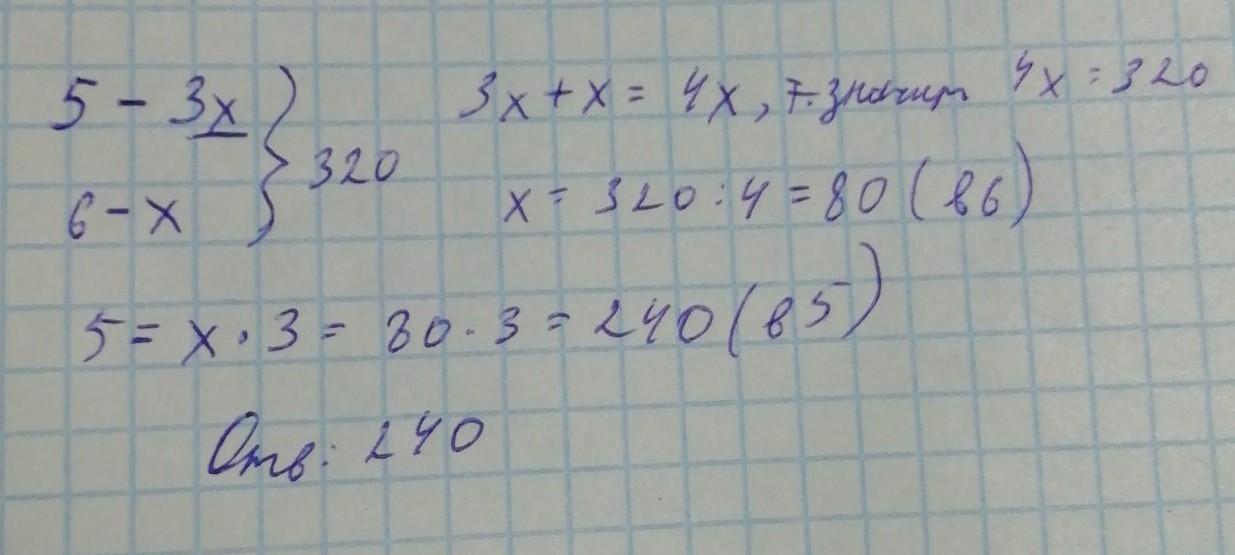 5 - 3x } 320
6 - x
3x + x = 4x, значит 4x = 320
x = 320 : 4 = 80 (в6)
5 = x · 3 = 80 · 3 = 240 (в5)
Отв: 240